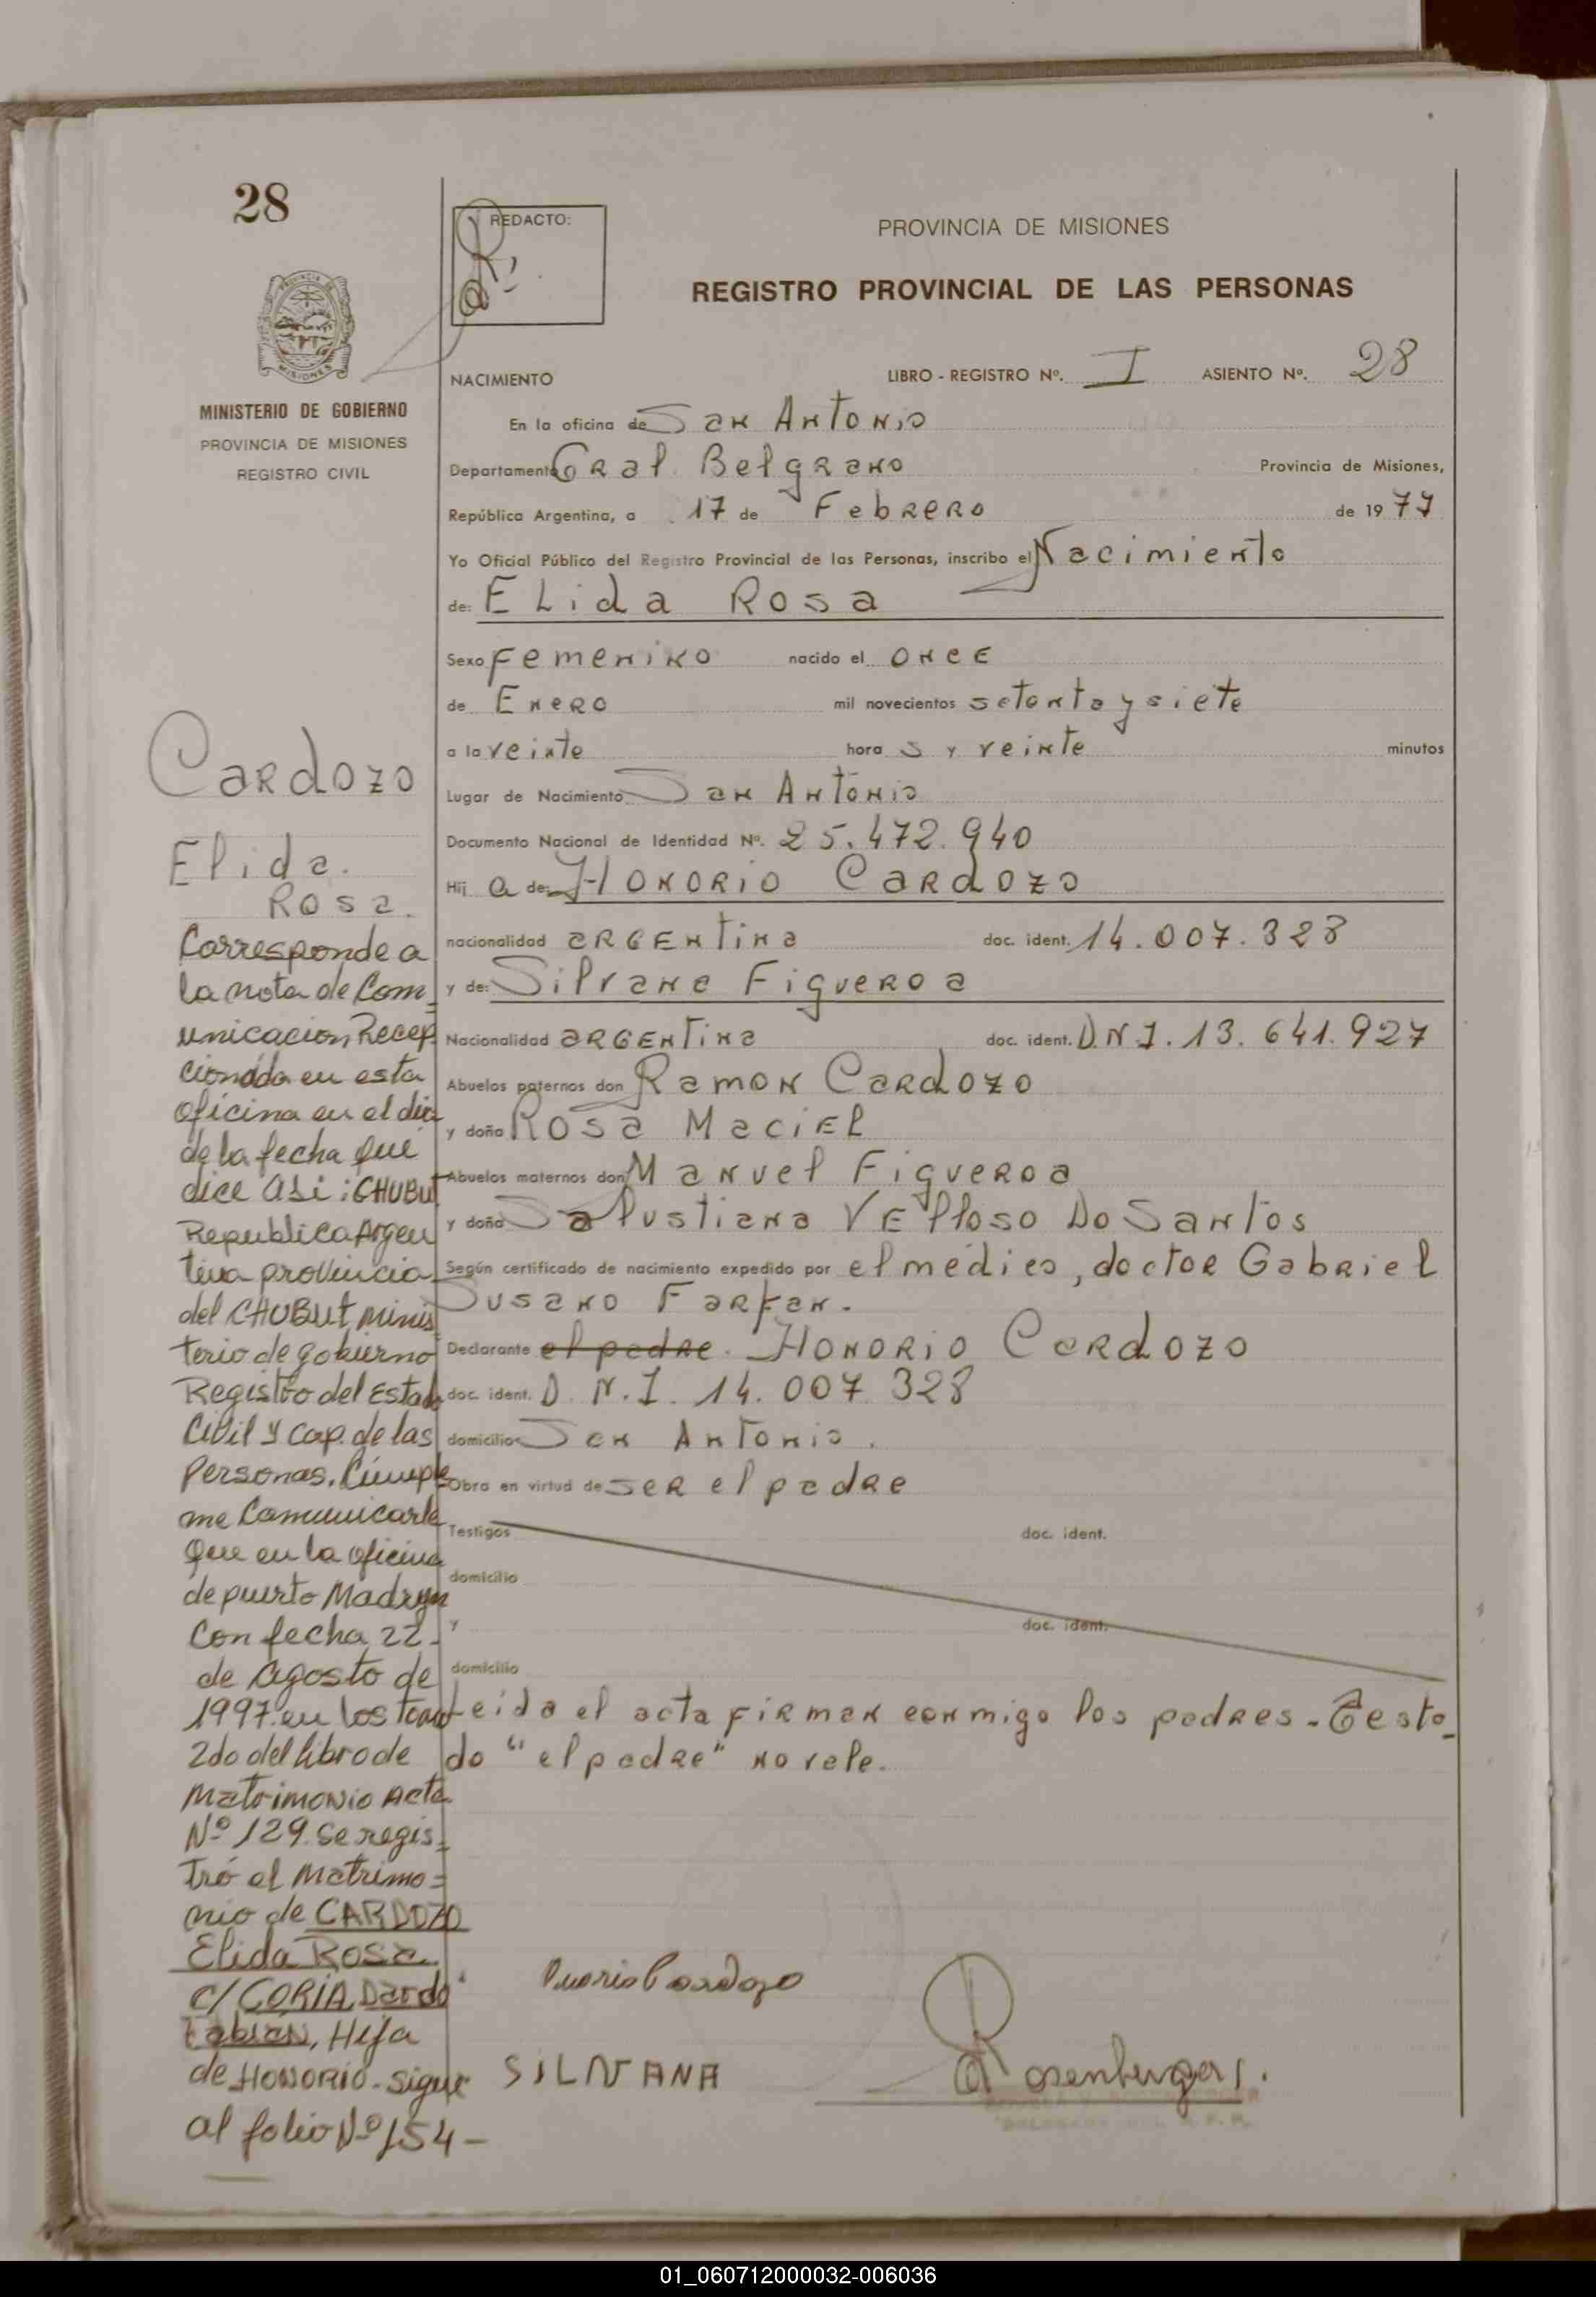 28
REDACTO:
PROVINCIA DE MISIONES
REGISTRO PROVINCIAL DE LAS PERSONAS
PROVINCIA DE
MISIONES
MINISTERIO DE GOBIERNO
PROVINCIA DE MISIONES
REGISTRO CIVIL
NACIMIENTO LIBRO - REGISTRO Nº. I ASIENTO Nº. 28
En la oficina de San Antonio
Departamento Gral. Belgrano Provincia de Misiones,
República Argentina, a 17 de Febrero de 1977
Yo Oficial Público del Registro Provincial de las Personas, inscribo el Nacimiento
de: ELida Rosa
Sexo Femenino nacido el once
de Enero mil novecientos setenta y siete
a la veinte hora s y veinte minutos
Lugar de Nacimiento San Antonio
Documento Nacional de Identidad Nº. 25.472.940
Hij a de: Honorio Cardozo
nacionalidad argentina doc. ident. 14.007.328
y de: Silvana Figueroa
Nacionalidad argentina doc. ident. D.N.I. 13.641.927
Abuelos paternos don Ramon Cardozo
y doña Rosa Maciel
Abuelos maternos don Manuel Figueroa
y doña Salustiana Velloso Do Santos
Según certificado de nacimiento expedido por el médico, doctor Gabriel
Susano Farfan.
Declarante el padre. Honorio Cardozo
doc. ident. D.N.I. 14.007.328
domicilio San Antonio.
Obra en virtud de ser el padre
Testigos doc. ident.
domicilio
y doc. ident.
domicilio
Leida el acta firman conmigo los padres. Testa-
do "el padre" no vale.
Cardozo
SILNANA
Rosenberger.
Cardozo
Elida.
Rosa.
Corresponde a
la nota de Com=
unicacion Recep
cionada en esta
oficina en el dia
de la fecha que
dice asi: CHUBUT
Republica Argen
tina provincia
del CHUBUT, Minis
terio de gobierno
Registro del Estado
Civil y Cap. de las
Personas. Cúmple
me Comunicarle
Que en la oficina
de puerto Madryn
Con fecha 22-
de Agosto de
1997. en los tomo
2do del libro de
Matrimonio Acta
Nº 129. Se regis=
tró el Matrimo=
nio de CARDOZO
Elida Rosa
c/ CORIA, Dardo
Fabian, Hija
de HONORIO - sigue
al folio Nº 154-
01_060712000032-006036